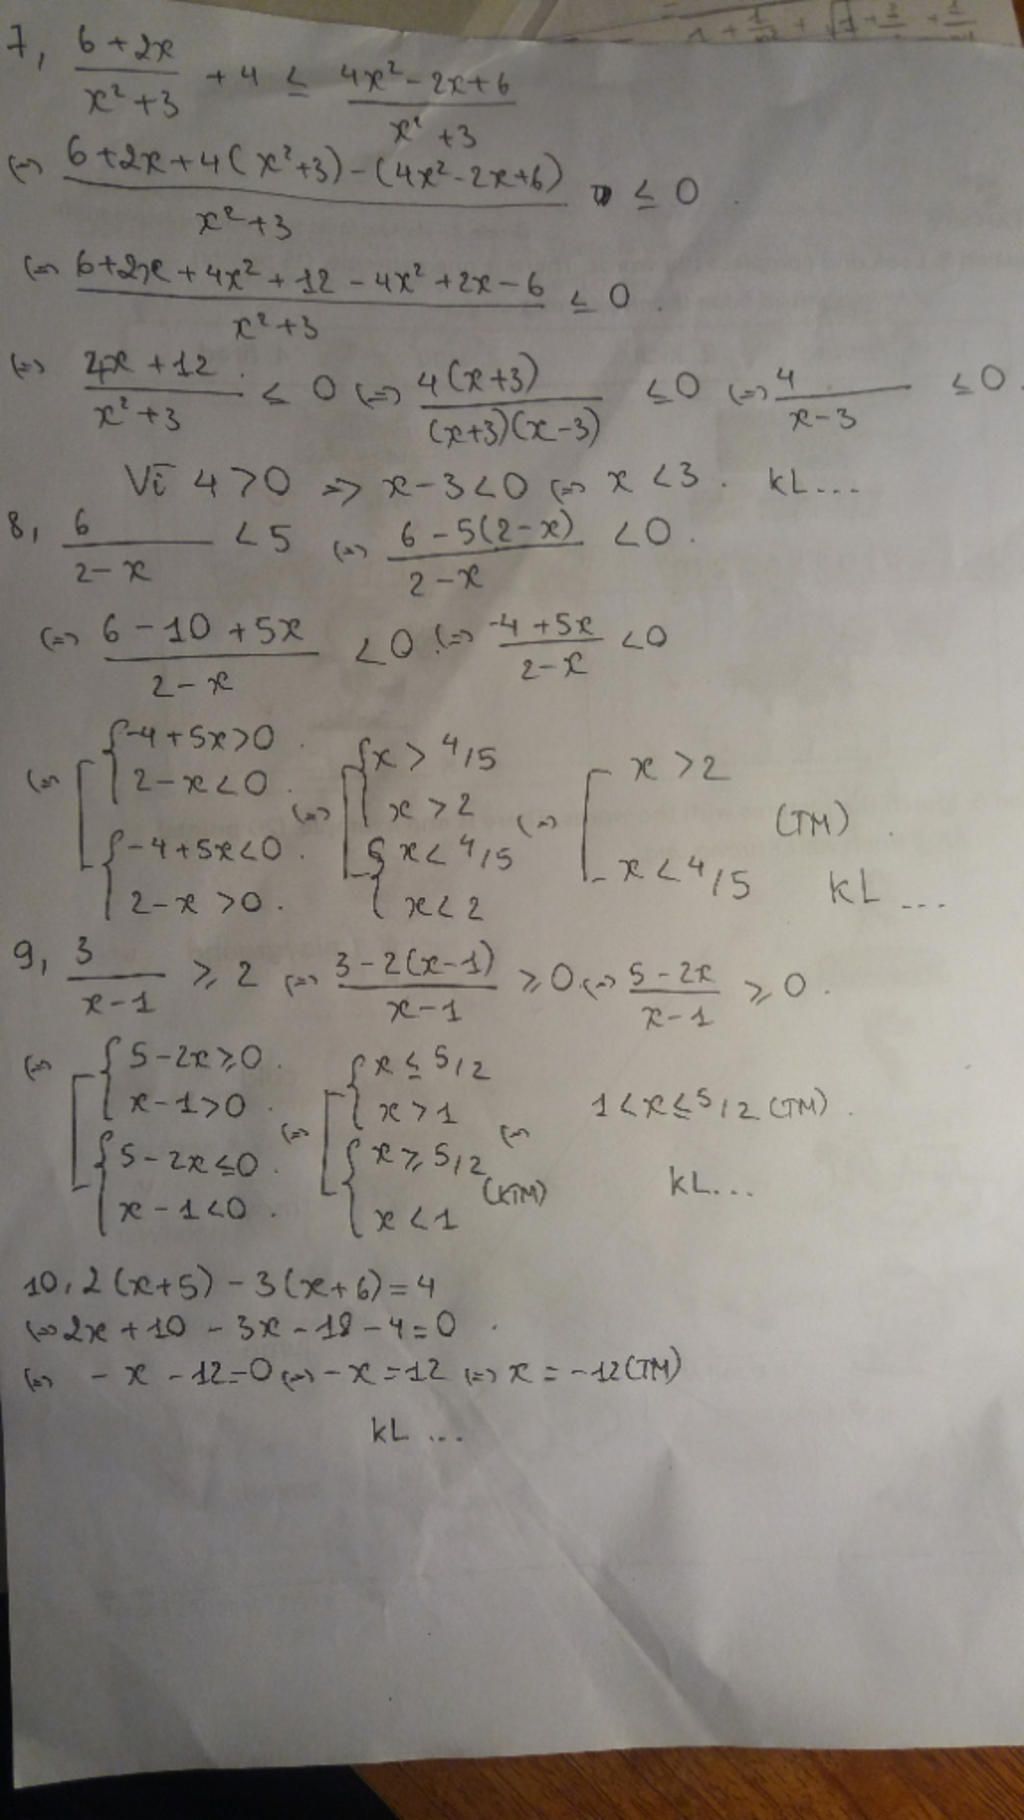 7, (6+2x)/(x²+3) + 4 ≤ (4x²-2x+6)/(x²+3)
(=) (6+2x+4(x²+3)-(4x²-2x+6))/(x²+3) ≤ 0.
(=) (6+2x+4x²+12-4x²+2x-6)/(x²+3) ≤ 0.
(=) (4x+12)/(x²+3) ≤ 0 (=) (4(x+3))/((x+3)(x-3)) ≤ 0 (=) 4/(x-3) ≤ 0.
Vì 4>0 => x-3<0 (=) x<3. kL...
8, 6/(2-x) < 5 (=) (6-5(2-x))/(2-x) < 0.
(=) (6-10+5x)/(2-x) < 0 (=) (-4+5x)/(2-x) < 0
(=) [ { -4+5x>0. (=) [ { x > 4/5 (=) [ x > 2
{ 2-x<0. { x > 2 (TM).
{ -4+5x<0. { x < 4/5 x < 4/5
{ 2-x>0. { x < 2 kL...
9, 3/(x-1) ≥ 2 (=) (3-2(x-1))/(x-1) ≥ 0 (=) (5-2x)/(x-1) ≥ 0.
(=) [ { 5-2x≥0. (=) [ { x ≤ 5/2 (=) 1<x≤5/2 (TM).
{ x-1>0. { x > 1
{ 5-2x≤0. { x ≥ 5/2 (KTM) kL...
{ x-1<0. { x < 1
10, 2(x+5)-3(x+6)=4
(=) 2x+10-3x-18-4=0.
(=) -x-12=0 (=) -x=12 (=) x=-12(TM)
kL...